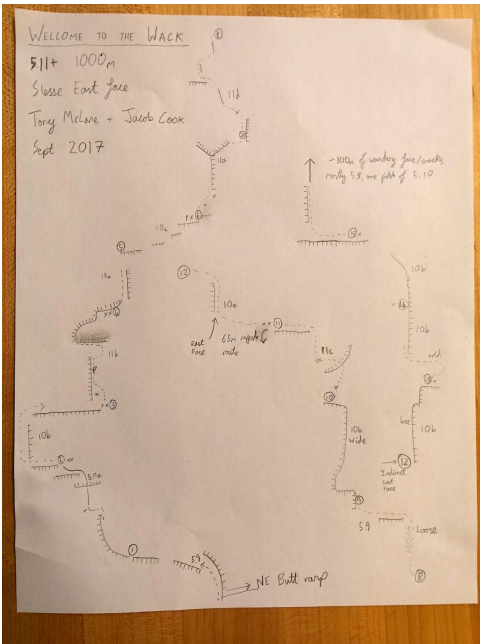 WELCOME TO THE WACK
5.11+ 1000m
Slesse East face
Tony McLane + Jacob Cook
Sept 2017
8
11d
11a
10a
5
10a
xx
11b
P
3
10b
2 xx
5.11a
1
5.9
NE Butt ramp
~300m of wandering face/cracks
Mostly 5.9, one pitch of 5.10
12
10a
East
Face
65m
route
xx 11
11c
10
10b
Wide
9
5.9
Loose
8
10b
14
10b
13
10b
12
Indirect
East
Face